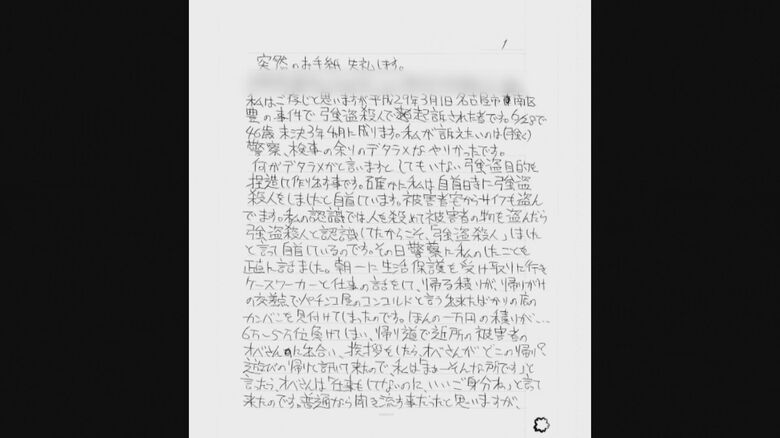 1
突然のお手紙 失礼します。
私はご存じと思いますが平成29年3月1日名古屋市南区
豊の事件で強盗殺人で起訴された者です。6/28で
46歳 未決3年4ヶ月に成ります。私が訴えたいのは
警察、検事の余りのデタラメなやりかたです。
何がデタラメかと言いますとしてもいない強盗目的を
捏造して作り出す事です。確かに私は自首時に強盗
殺人をしましたと自首しています。被害者宅からサイフも盗ん
でます。私の認識では人を殺めて被害者の物を盗んだら
強盗殺人と認識してたからこそ、「強盗殺人」しました
と言って自首しているのです。その日警察に私のしたことを
正直に話ました。朝一に生活保護を受け取りに行き
ケースワーカーと仕事の話をして、帰る積りが、帰りがけ
の交差点でパチンコ屋のコンコルドと言う出来たばかりの店の
カンバンを見付けてしまったのです。ほんの一万円の積りが、…
6万〜5万位負けてしまい、帰り道で近所の被害者の
オバさんに出合い、挨拶をしたら、オバさんが どこの帰り?
遊びの帰りと訊いて来たので、私は「まぁーそんな所です」と
言ったら、オバさんは「仕事もしてないのに、いいご身分ね」と言って
来たのです。普通なら聞き流す事だったと思いますが、